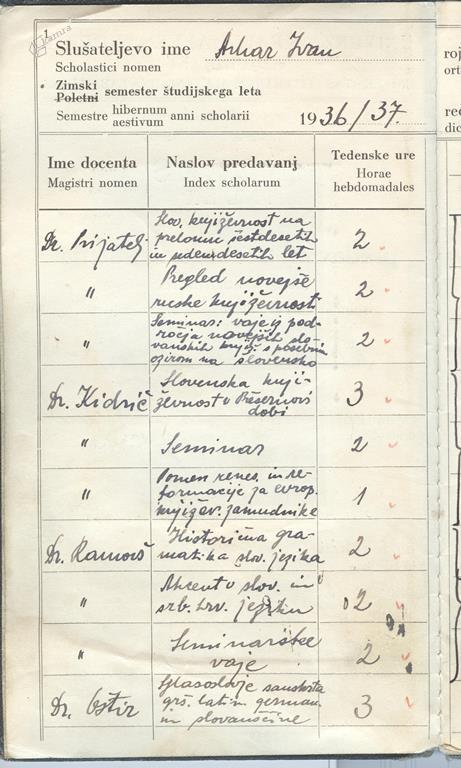 kamra
1
Slušateljevo ime Arhar Ivan
Scholastici nomen
Zimski
Poletni
semester študijskega leta
Semestre hibernum
aestivum
anni scholarii 1936/37.
Ime docenta
Magistri nomen
Naslov predavanj
Index scholarum
Tedenske ure
Horae
hebdomadales
Dr. Prijatelj
Slov. književnost na
prelomu šestdesetih
in sedemdesetih let
2
"
Pregled novejše
ruske književnosti
2
"
Seminar: vaje iz pod-
ročja novejših slo-
vanskih knjiž. s posebnim
ozirom na slovensko
2
Dr. Kidrič
Slovenska knji-
ževnost v Prešernovi
dobi
3
"
Seminar
2
"
Pomen renes. in re-
formacije za evrop.
književ. zamudnike
1
Dr. Ramovš
Historična gra-
matika slov. jezika
2
"
Akcent v slov. in
srb. hrv. jeziku
2
"
Seminarske
vaje
2
Dr. Oštir
Glasoslovje sanskrta
grš. latin. german.
in slovanščine
3
roj
ort
reč
dic